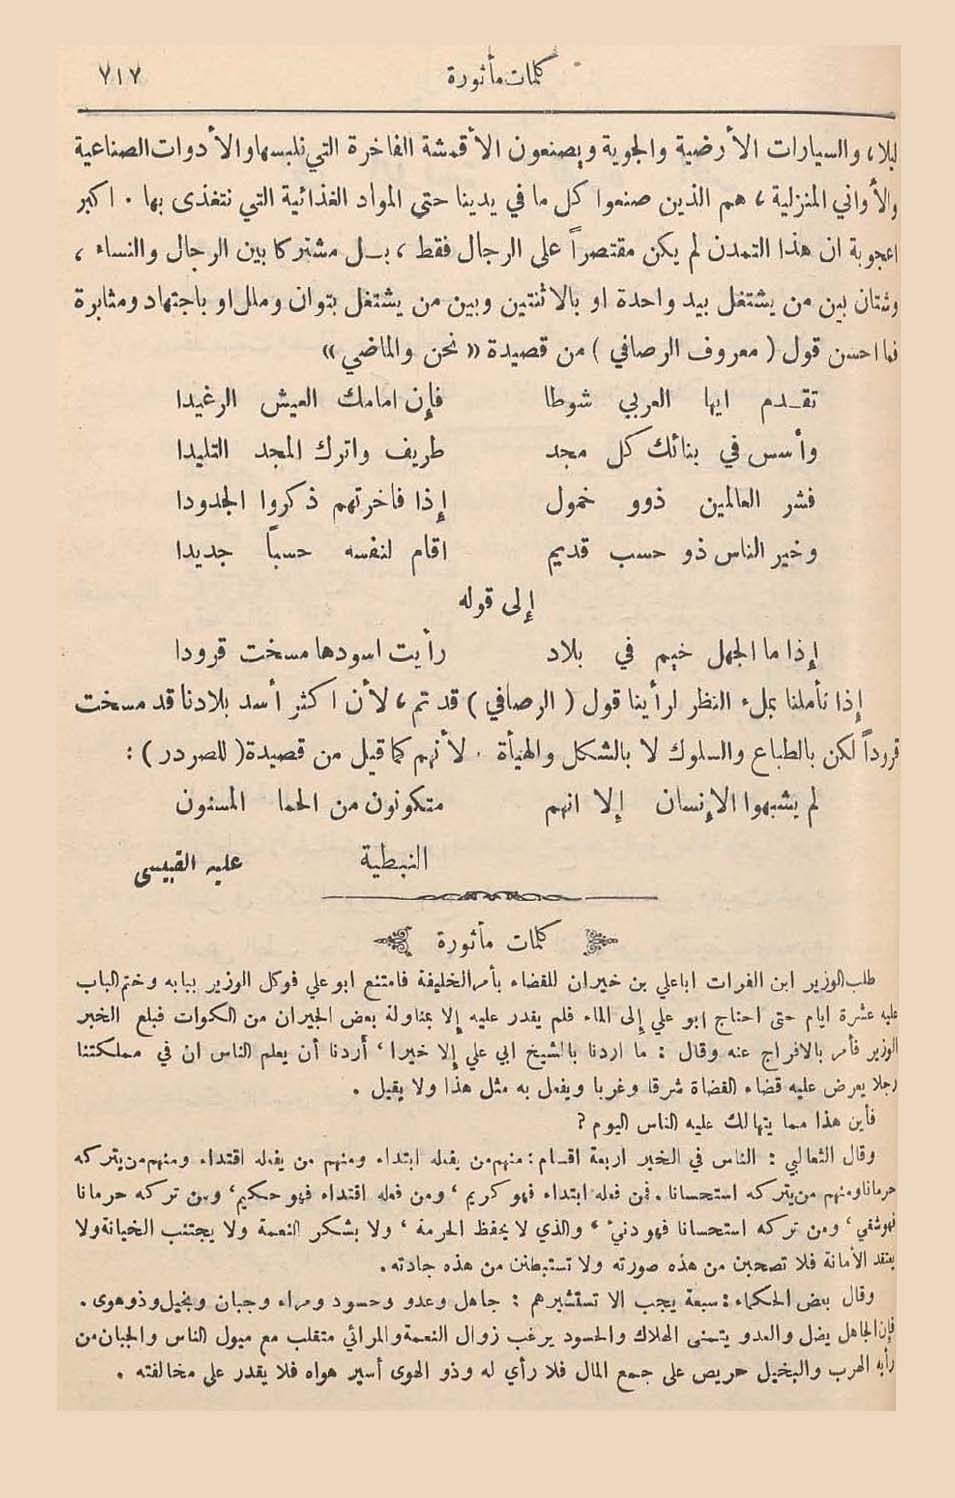 كلمات مأثورة ٧١٧
ليلا، والسيارات الأرضية والجوية ويصنعون الأقمشة الفاخرة التي نلبسها والأدوات الصناعية
والأواني المنزلية، هم الذين صنعوا كل ما في يدينا حتى المواد الغذائية التي نتغذى بها. اكبر
اعجوبة ان هذا التمدن لم يكن مقتصراً على الرجال فقط، بـل مشتركا بين الرجال والنساء،
وشتان بين من يشتغل بيد واحدة او بالاثنتين وبين من يشتغل بتوان وملل او باجتهاد ومثابرة
فما احسن قول (معروف الرصافي) من قصيدة «نحن والماضي»
تقـدم ايها العربي شوطا فإن امامك العيش الرغيدا
وأسس في بنائك كل مجد طريف واترك المجد التليدا
فشر العالمين ذوو خمول إذا فاخرتهم ذكروا الجدودا
وخير الناس ذو حسب قديم اقام لنفسه حسباً جديدا
إلى قوله
إذا ما الجهل خيم في بلاد رأيت اسودها مسخت قرودا
إذا تأملنا بملء النظر لرأينا قول (الرصافي) قد تم، لأن اكثر أسد بلادنا قد مسخت
قروداً لكن بالطباع والسلوك لا بالشكل والهيأة. لأنهم كما قيل من قصيدة (للصردر):
لم يشبهوا الإنسان إلا انهم متكونون من الحما المسنون
النبطية علية القبيسى
كلمات مأثورة
طلب الوزير ابن الفرات اباعلي بن خيران للقضاء بأمر الخليفة فامتنع ابو علي فوكل الوزير ببابه وختم الباب
عليه عشرة ايام حتى احتاج ابو علي إلى الماء فلم يقدر عليه إلا بمناولة بعض الجيران من الكوات فبلغ الخبر
الوزير فأمر بالافراج عنه وقال: ما اردنا بالشيخ ابي علي إلا خيرا، أردنا أن يعلم الناس ان في مملكتنا
رجلا يعرض عليه قضاء القضاة شرقا وغربا ويفعل به مثل هذا ولا يقيل.
فأين هذا مما يتهالك عليه الناس اليوم؟
وقال الثعالبي: الناس في الخير اربعة اقسام: منهم من يفعله ابتداء ومنهم من يفعله اقتداء ومنهم من يتركه
حرمانا ومنهم من يتركه استحسانا. فمن فعله ابتداء فهو كريم، ومن فعله اقتداء فهو حكيم، ومن تركه حرمانا
فهو شقي، ومن تركه استحسانا فهو دنيء، والذي لا يحفظ الحرمة، ولا يشكر النعمة ولا يجتنب الخيانة ولا
يعتقد الأمانة فلا تصحبن من هذه صورته ولا تستبطنن من هذه جادته.
وقال بعض الحكماء: سبعة يجب الا تستشيرهم: جاهل وعدو وحسود ومراء وجبان وبخيل وذو هوى.
فإن الجاهل يضل والعدو يتمنى الهلاك والحسود يرغب زوال النعمة والمرائي متقلب مع ميول الناس والجبان من
رأيه الهرب والبخيل حريص على جمع المال فلا رأي له وذو الهوى أسير هواه فلا يقدر على مخالفته.